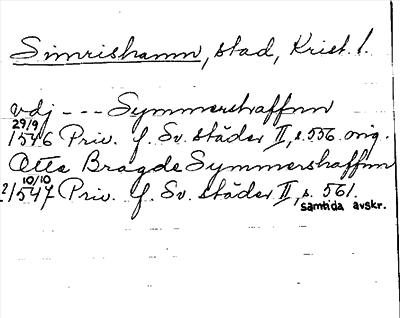 Simrishamn, stad, Krist. l.
vdj --- Symmershaffnn
29/9
1546 Priv. f. Sv. städer II, s. 556. orig.
Otte Bragde Symmershaffnn
10/10
1547 Priv. f. Sv. städer II, s. 561.
samtida avskr.